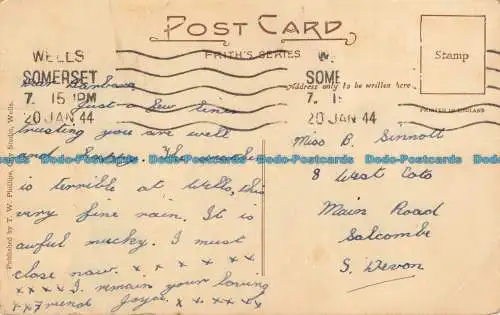 POST CARD
FRITH'S SERIES
WELLS
SOMERSET
7. 15 PM
20 JAN 44
W.
SOME
7. 15
20 JAN 44
Stamp
Address only to be written here.
PRINTED IN ENGLAND
Published by T. W. Phillips, City Studio, Wells.
Dear Barbara,
Just a few lines
trusting you are well
and happy. The weather
is terrible at Wells, this
very fine rain. It is
awful mucky. I must
close now. x x x x x x
x x x x I remain your loving
x x Friend Joyce. x x x x x x
Miss B. Sinnott
8 West Cots
Main Road
Salcombe
S. Devon.
Dodo-Postcards Dodo-Postcards Dodo-Postcards Dodo-Postcards